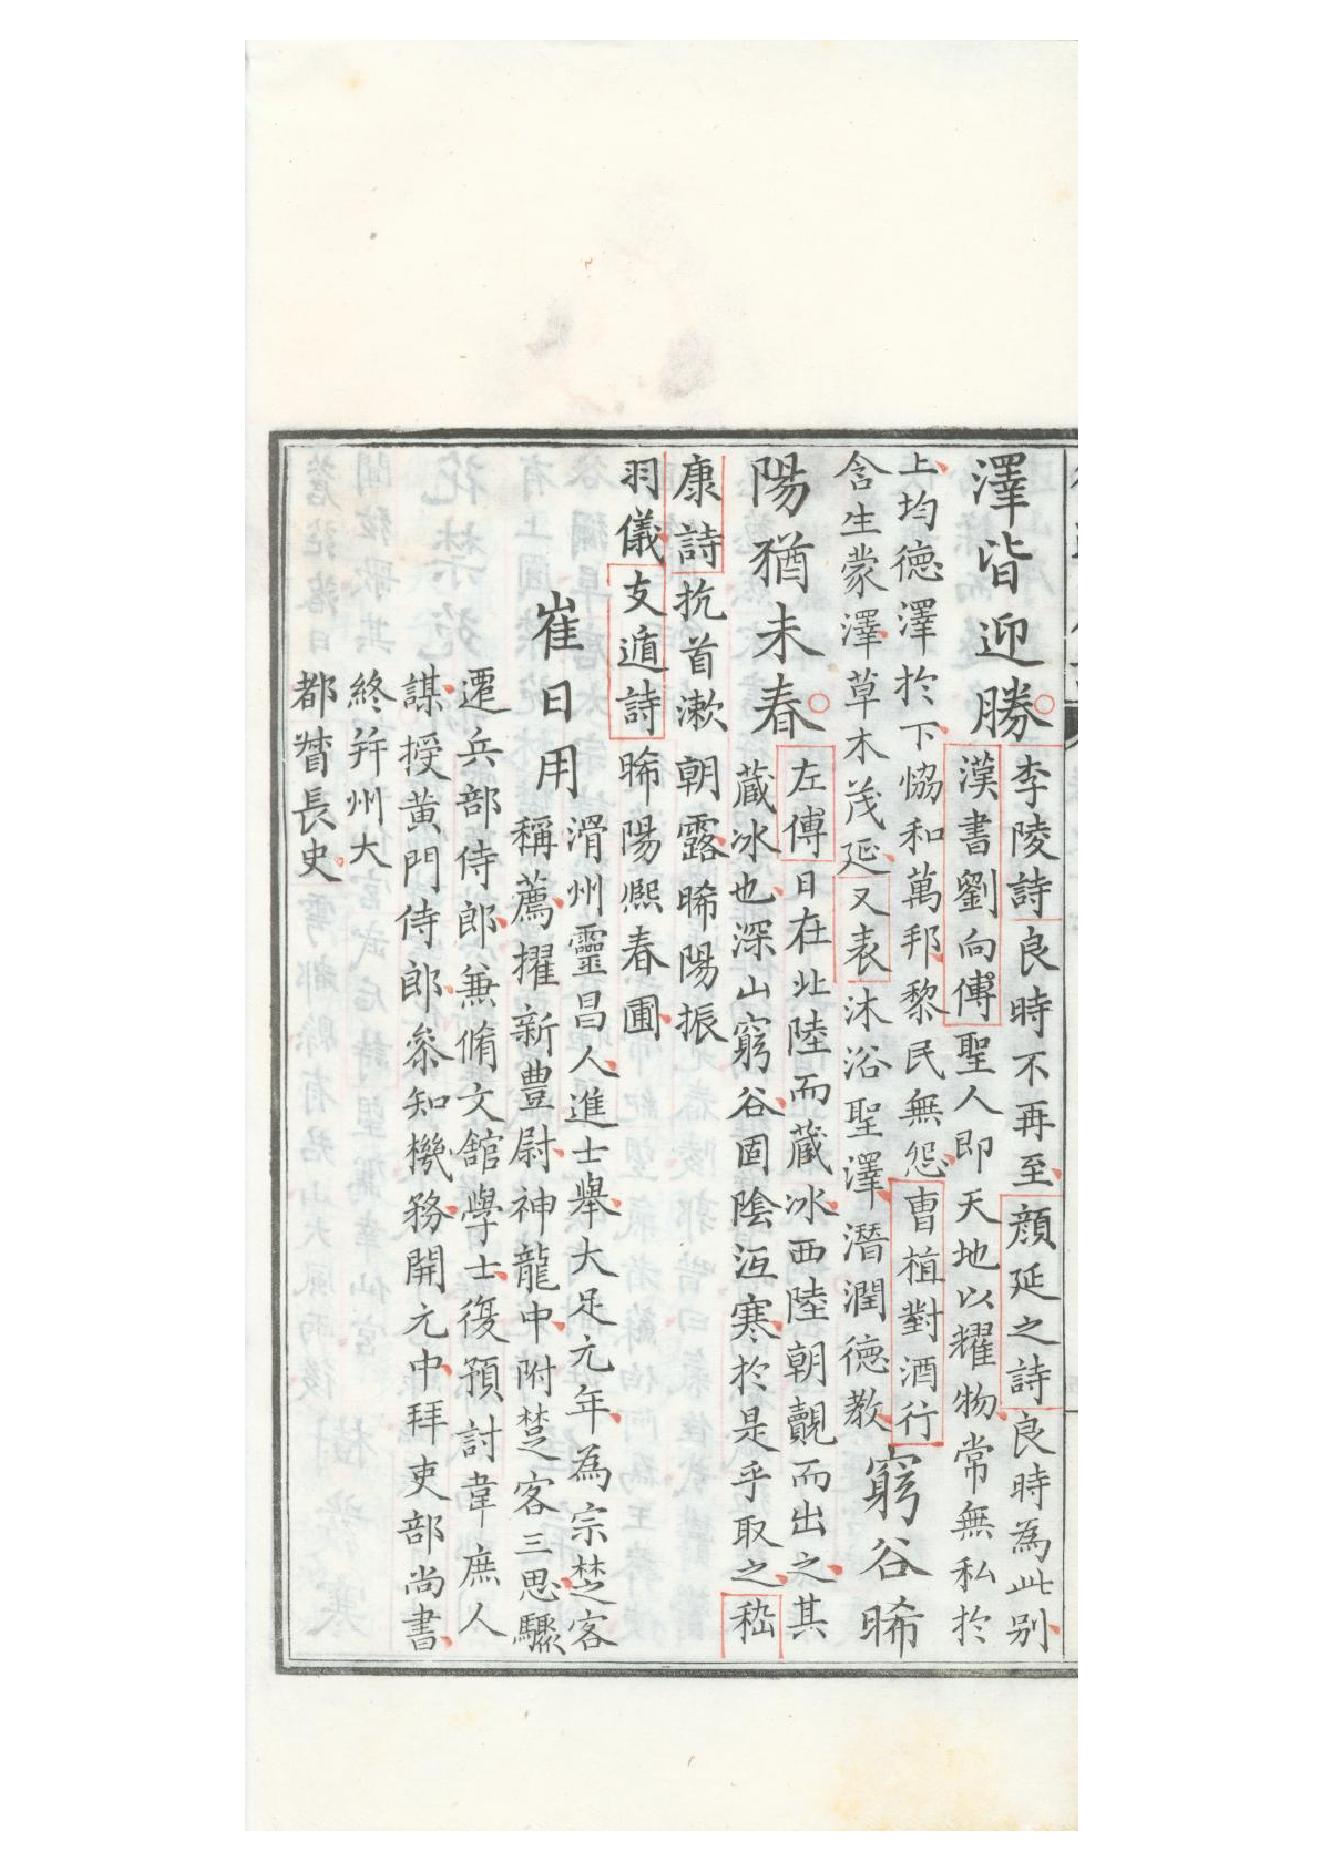 澤皆迎勝
李陵詩良時不再至顔延之詩良時為此别
漢書劉向傳聖人即天地以耀物常無私於
上均德澤於下恊和萬邦黎民無怨曹植對酒行
含生蒙澤草木茂延又表沐浴聖澤潛潤德教
窮谷晞
陽猶未春
左傳日在北陸而藏冰西陸朝覿而出之其
藏冰也深山窮谷固陰沍寒於是乎取之嵇
康詩抗首漱朝露晞陽振
羽儀支遁詩晞陽熈春圃
崔日用
滑州靈昌人進士舉大足元年為宗楚客
稱薦擢新豊尉神龍中附楚客三思驟
遷兵部侍郎兼脩文館學士復預討韋庶人
謀授黄門侍郎叅知機務開元中拜吏部尚書
終并州大
都督長史